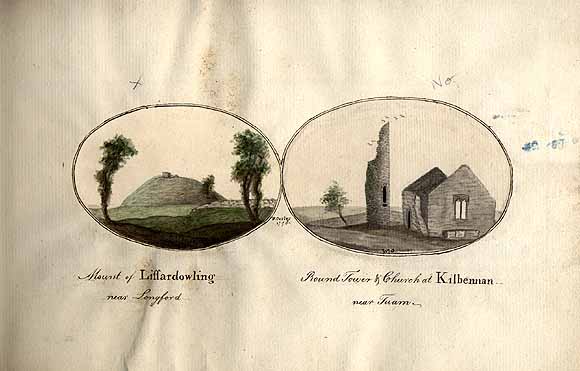 No
Mount of Liffardowling
near Longford
Round Tower & Church at Kilbennan
near Tuam